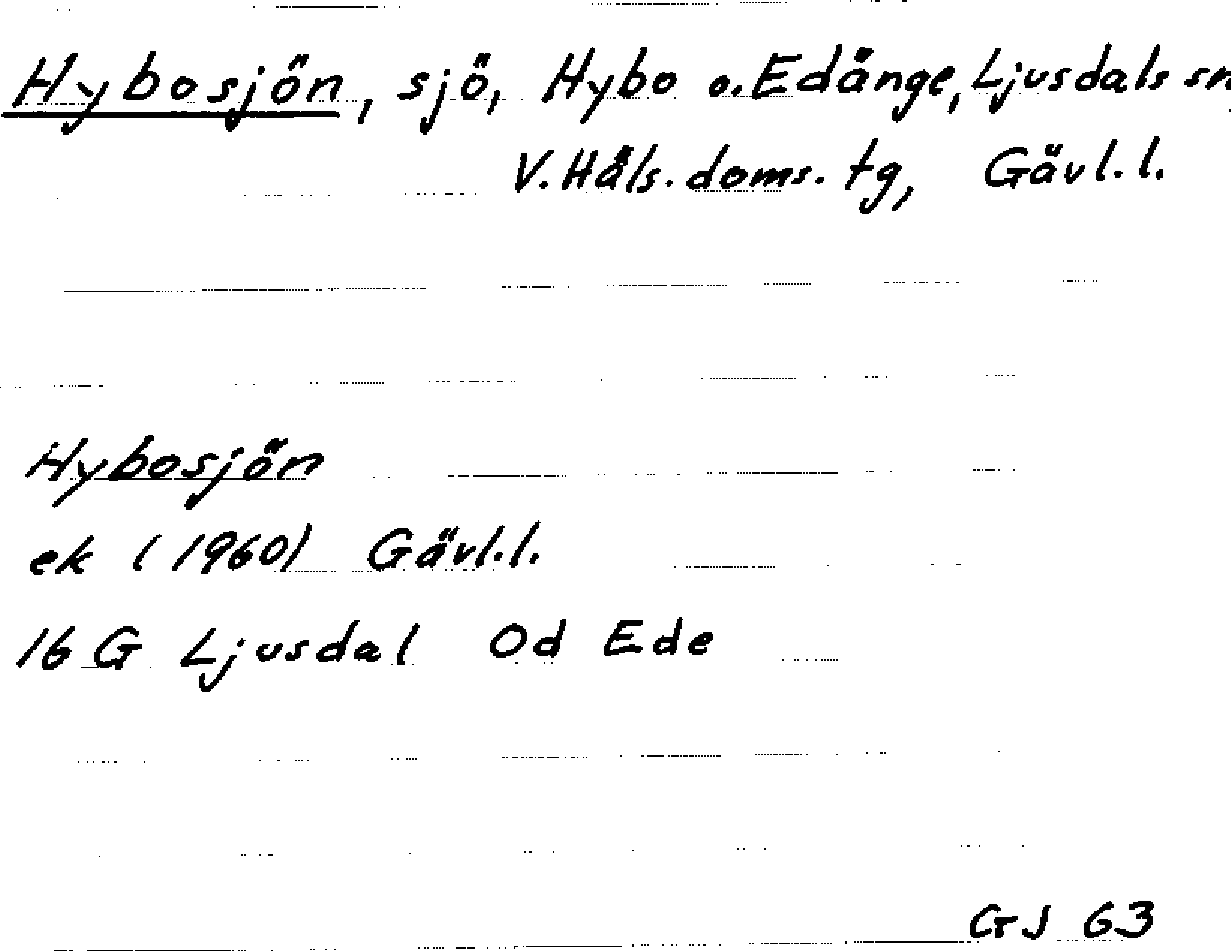 Hybosjön, sjö, Hybo o. Edänge, Ljusdals sn,
V. Häls. doms. tg, Gävl. l.
Hybosjön
ek (1960) Gävl. l.
16 G Ljusdal Od Ede
GJ 63